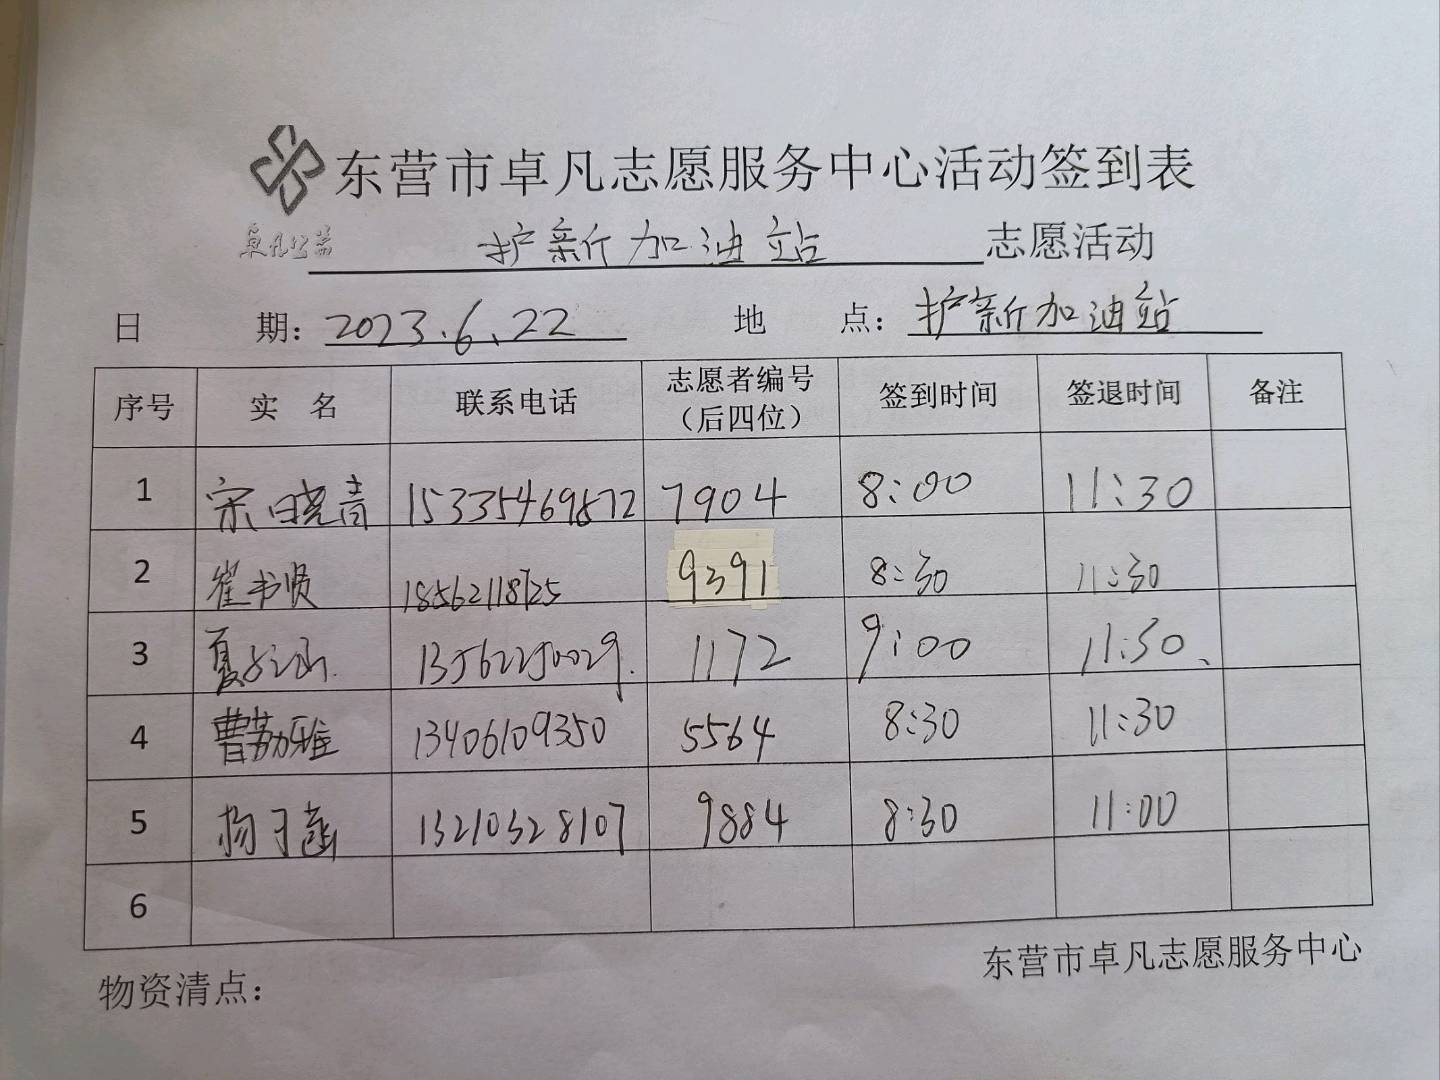 东营市卓凡志愿服务中心活动签到表
卓凡公益
护新加油站 志愿活动
日 期：2023.6.22 地 点：护新加油站
序号 实 名 联系电话 志愿者编号（后四位） 签到时间 签退时间 备注
1 宋晓青 15335469872 7904 8:00 11:30
2 崔书贤 18562118125 9391 8:30 11:30
3 夏 13562250029. 1172 9:00 11:30、
4 曹荔雅 13406109350 5564 8:30 11:30
5 杨子菡 13210328107 9884 8:30 11:00
6
东营市卓凡志愿服务中心
物资清点：